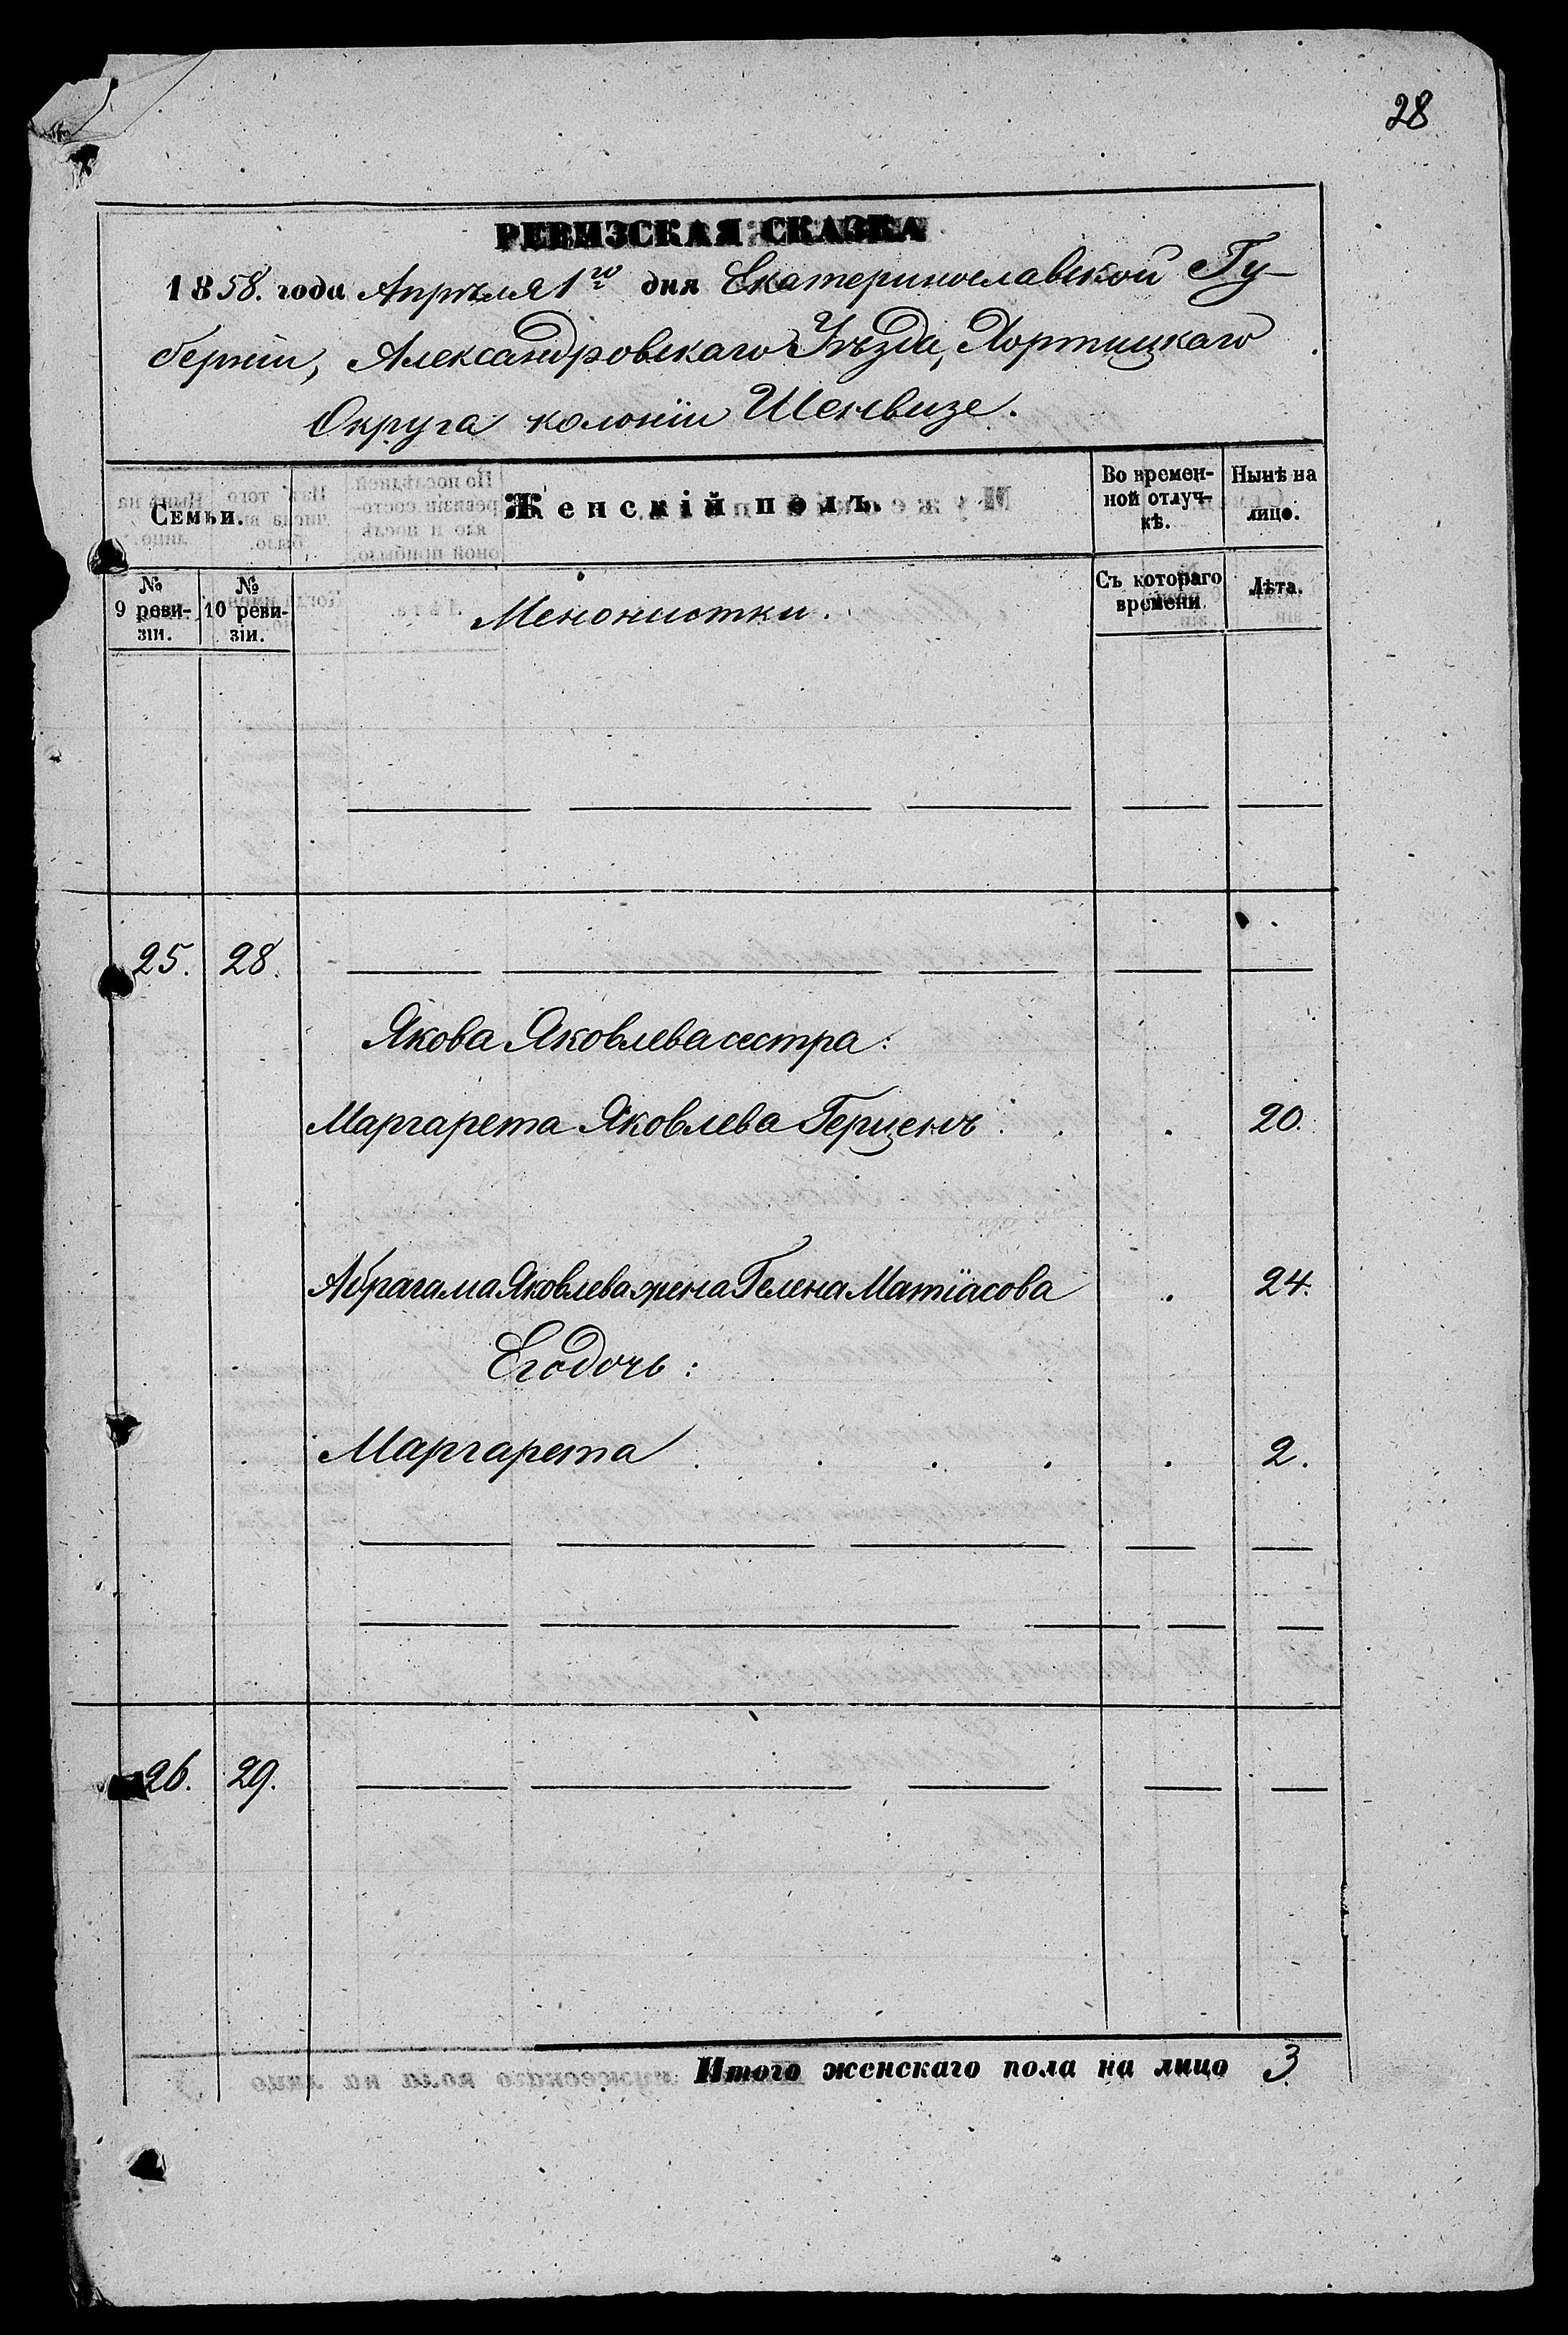 28
РЕВИЗСКАЯ СКАЗКА
1858. года Апрѣля 1го дня Екатеринославской Гу-
берніи, Александровскаго Уѣзда, Хортицкаго
Округа колоніи Шенвизе.
Семьи. Женскій полъ. Во времен-ной отлуч-кѣ. Нынѣ на лицо.
№ 9 реви-зіи. № 10 реви-зіи. Менонистки. Съ котораго времени Лѣта.
25. 28.
Якова Яковлева сестра:
Маргарета Яковлева Герценъ . . . 20.
Абрагама Яковлева жена Гелена Матіасова . 24.
Его дочь:
Маргарета . . . . . 2.
26. 29.
Итого женскаго пола на лицо 3